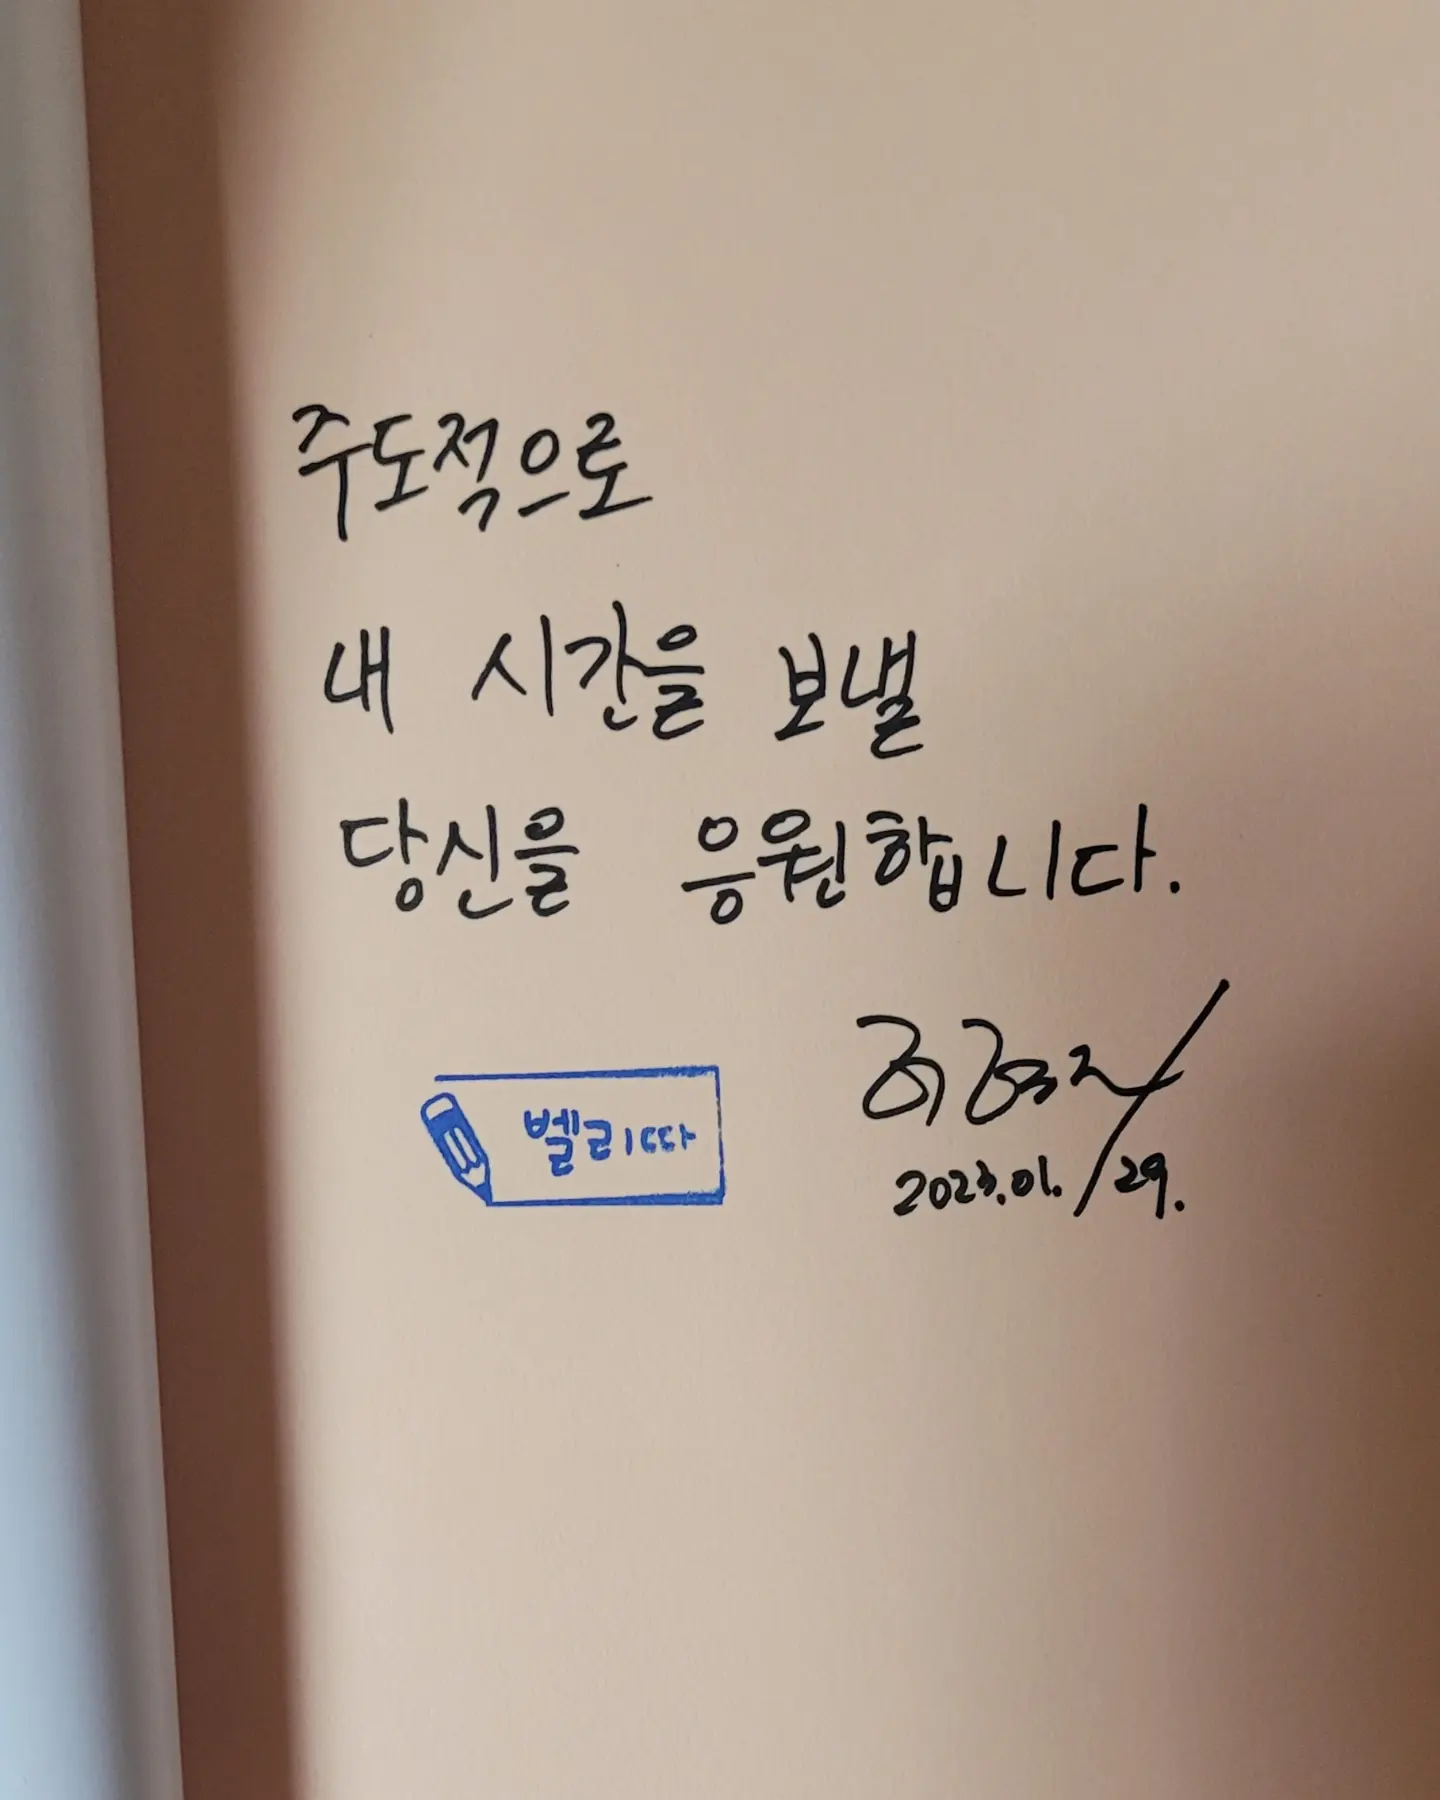 주도적으로
내 시간을 보낼
당신을 응원합니다.
벨리따
2023.01.29.